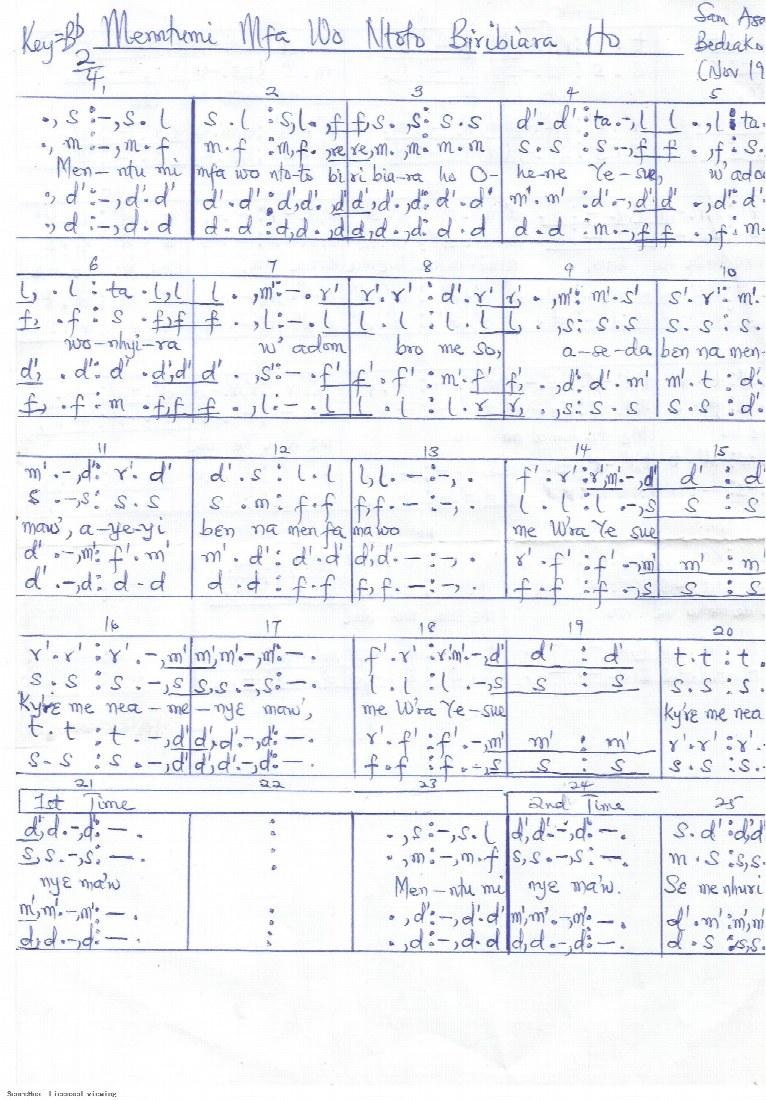 Key=Bb Memntumi Mfa Wo Ntoto Biribiara Ho
Sam Aso
Bediako
(Nov 19
2/4
1 2 3 4 5
., s :-, s . l | s . l : s, l . , f | f, s . , s : s . s | d' . d' : ta . -, l | l . , l : ta .
., m :-, m . f | m . f : m, f . , re | re, m . , m : m . m | s . s : s . -, f | f . , f : s .
Men-ntu mi mfa wo nto-to biribia-ra ho O- he-ne Ye-sue, w'adom
., d' :-, d' . d' | d' . d' : d', d' . , d' | d', d' . , d' : d' . d' | m' . m' : d' . -, d' | d' . , d' : d' .
., d :-, d . d | d . d : d, d . , d | d, d . , d : d . d | d . d : m . -, f | f . , f : m .
6 7 8 9 10
l, . l : ta . l, l | l . , m' : - . r' | r' . r' : d' . r' | r', . , m' : m' . s' | s' . r' : m' .
f, . f : s . f, f | f . , l : - . l | l . l : l . l | l, . , s : s . s | s . s : s .
wo-nhyi-ra w'adom bro me so, a-se-da ben na men-
d', . d' : d' . d', d' | d' . , s' : - . f' | f' . f' : m' . f' | f', . , d' : d' . m' | m' . t : d' .
f, . f : m . f, f | f . , l : - . l | l . l : l . r | r, . , s : s . s | s . s : d' .
11 12 13 14 15
m' . -, d' : r' . d' | d' . s : l . l | l, l . - : -, . | f' . r' : r', m' . -, d' | d' : d'
s . -, s : s . s | s . m : f . f | f, f . - : -, . | l . l : l . -, s | s : s
maw', a-ye-yi ben na menfa mawo me W'ra Ye sue
d' . -, m' : f' . m' | m' . d' : d' . d' | d', d' . - : -, . | r' . f' : f' . -, m' | m' : m'
d' . -, d : d . d | d . d : f . f | f, f . - : -, . | f . f : f . -, s | s : s
16 17 18 19 20
r' . r' : r' . -, m' | m', m' . -, m' : - . | f' . r' : r' m' . -, d' | d' : d' | t . t : t .
s . s : s . -, s | s, s . -, s : - . | l . l : l . -, s | s : s | s . s : s .
Ky'rɛ me nea-me-nyɛ maw', me W'ra Ye-sue Ky'rɛ me nea
t . t : t . -, d' | d', d' . -, d' : - . | r' . f' : f' . -, m' | m' : m' | r' . r' : r' .
s . s : s . -, d' | d', d' . -, d' : - . | f . f : f . -, s | s : s | s . s : s .
21 22 23 24 25
1st Time 2nd Time
d', d . -, d' : - . | : | . , s : -, s . l | d', d' . -, d' : - . | s . d' : d', d'
s, s . -, s : - . | : | . , m : -, m . f | s, s . -, s : - . | m . s : s, s .
nyɛ ma'w Men-ntu mi nyɛ ma'w. Sɛ menhuri
m', m' . -, m' : - . | : | . , d' : -, d' . d' | m', m' . -, m' : - . | d' . m' : m', m'
d, d . -, d : - . | : | . , d : -, d . d | d, d . -, d : - . | d . s : s, s .